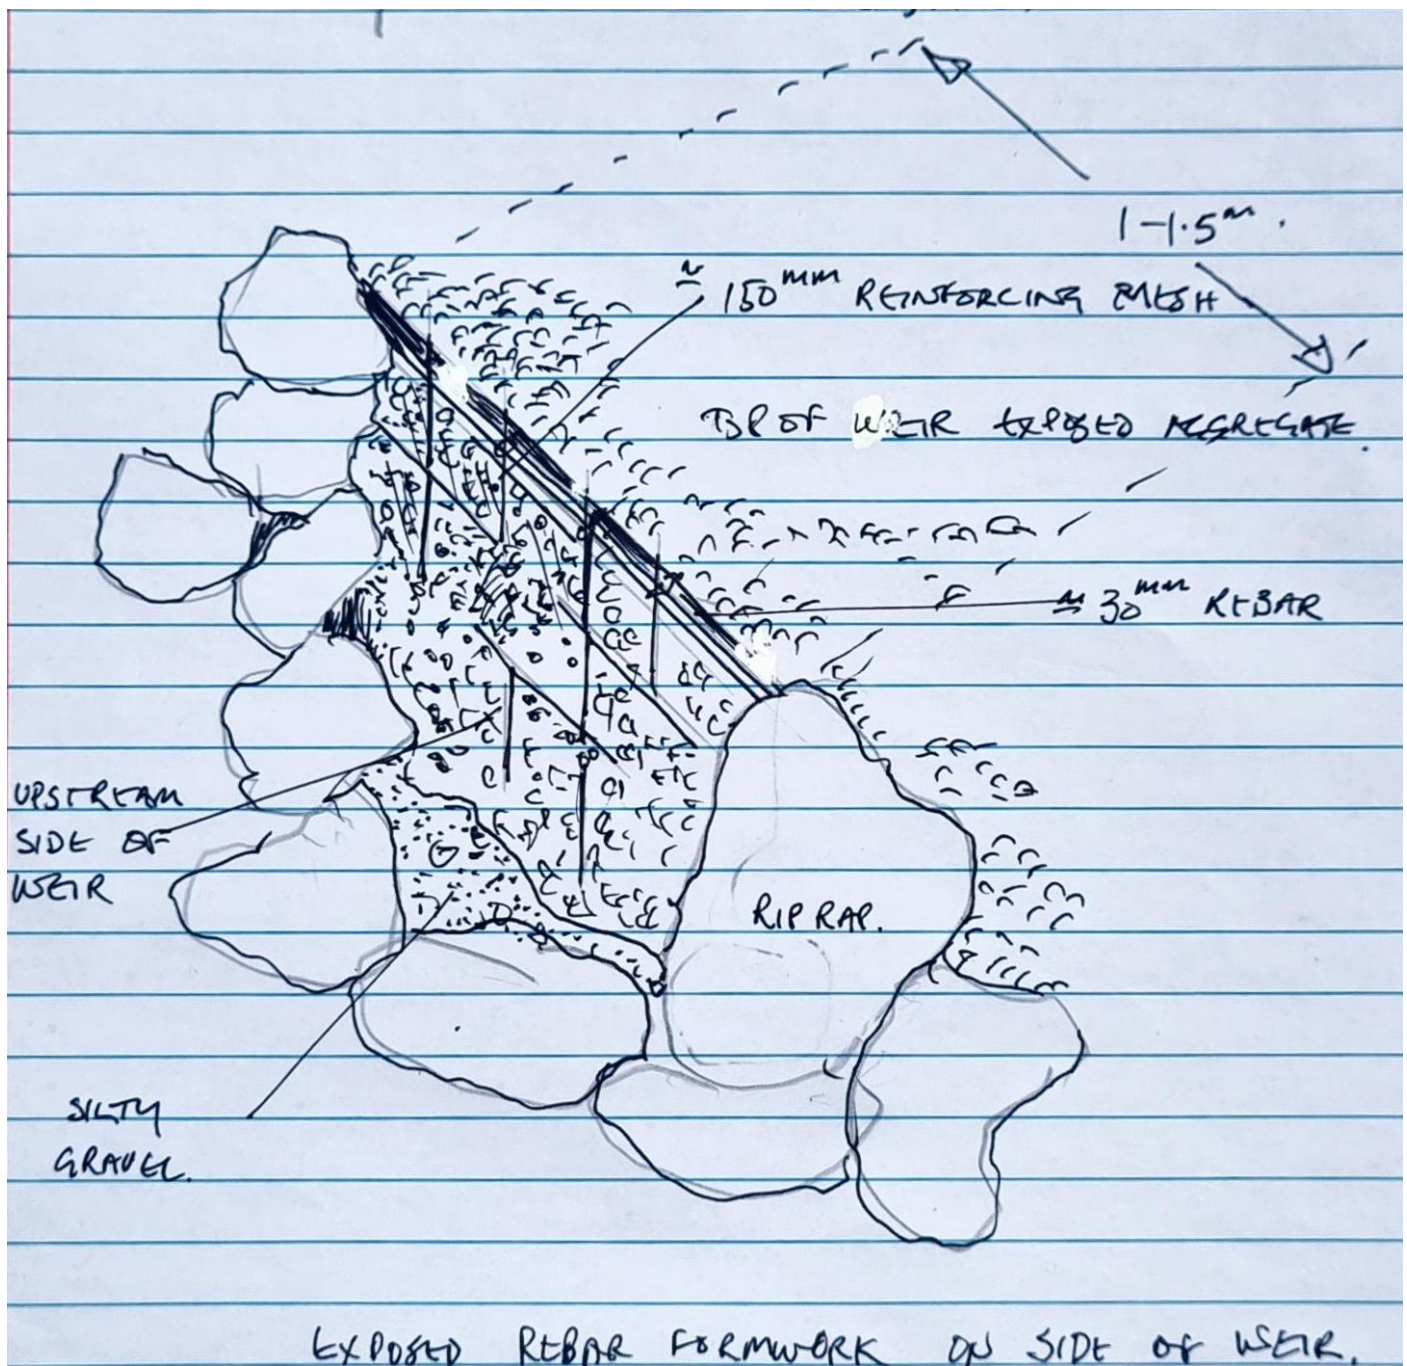 1-1.5m.
≈ 150mm REINFORCING MESH
TOP OF WEIR EXPOSED AGGREGATE.
≈ 30mm REBAR
UPSTREAM
SIDE OF
WEIR
RIP RAP.
SILTY
GRAVEL.
EXPOSED REBAR FORMWORK ON SIDE OF WEIR.